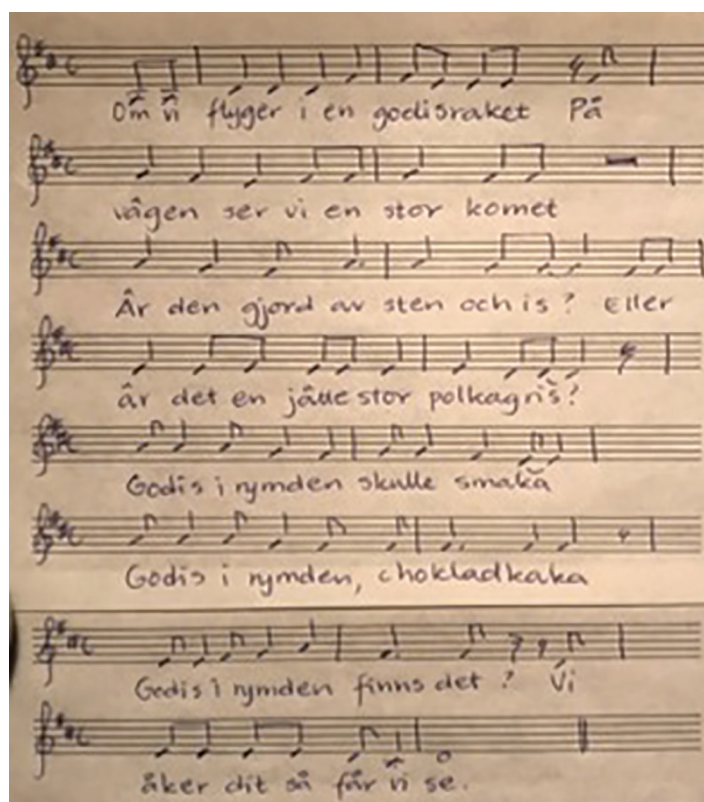 Om vi flyger i en godisraket På
vägen ser vi en stor komet
Är den gjord av sten och is? Eller
är det en jättestor polkagris?
Godis i rymden skulle smaka
Godis i rymden, chokladkaka
Godis i rymden finns det? Vi
åker dit så får vi se.